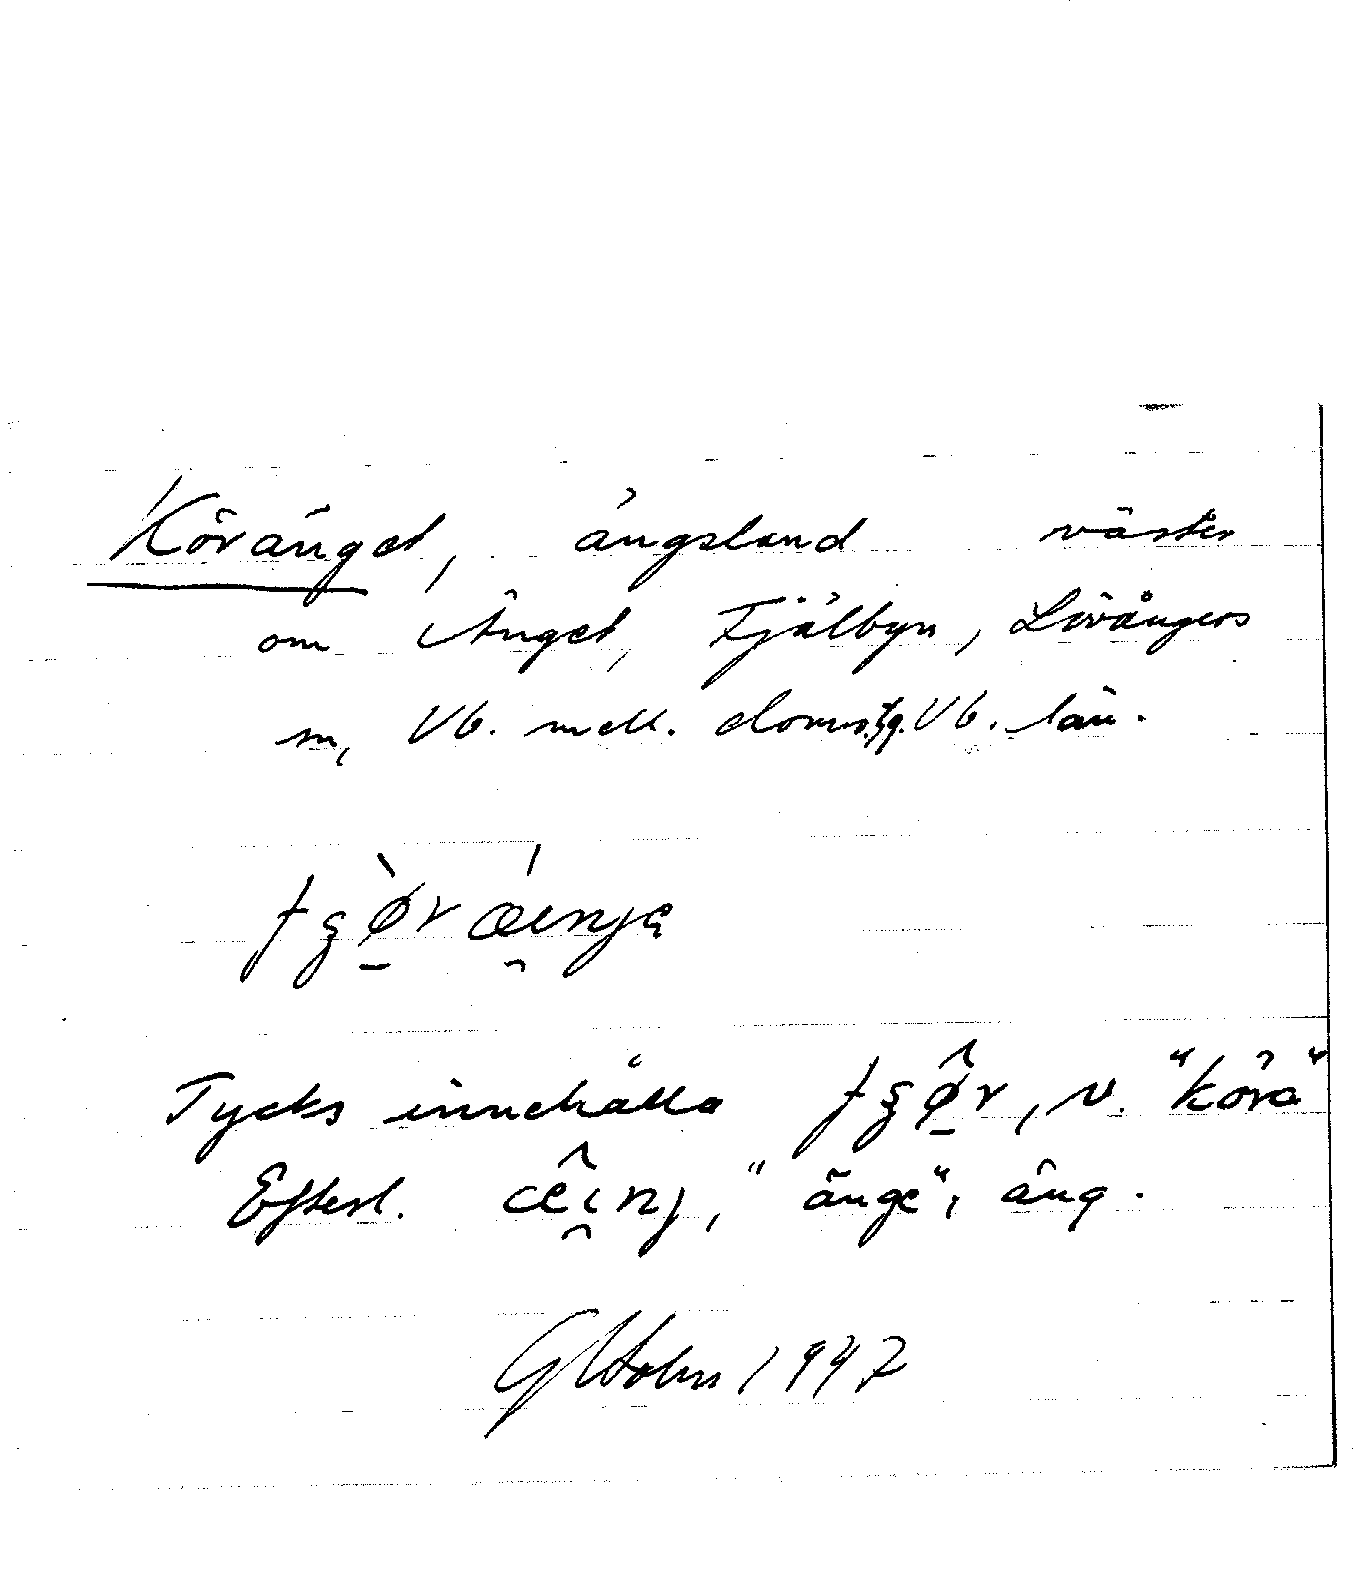 Köränget, ängsland väster
om Änget, Fjälbyn, Lövångers
sn, Vb. mell. doms.sg. Vb. län.
Tycks innehålla , v. "köra"
Efterl. , "änge", äng.
1947